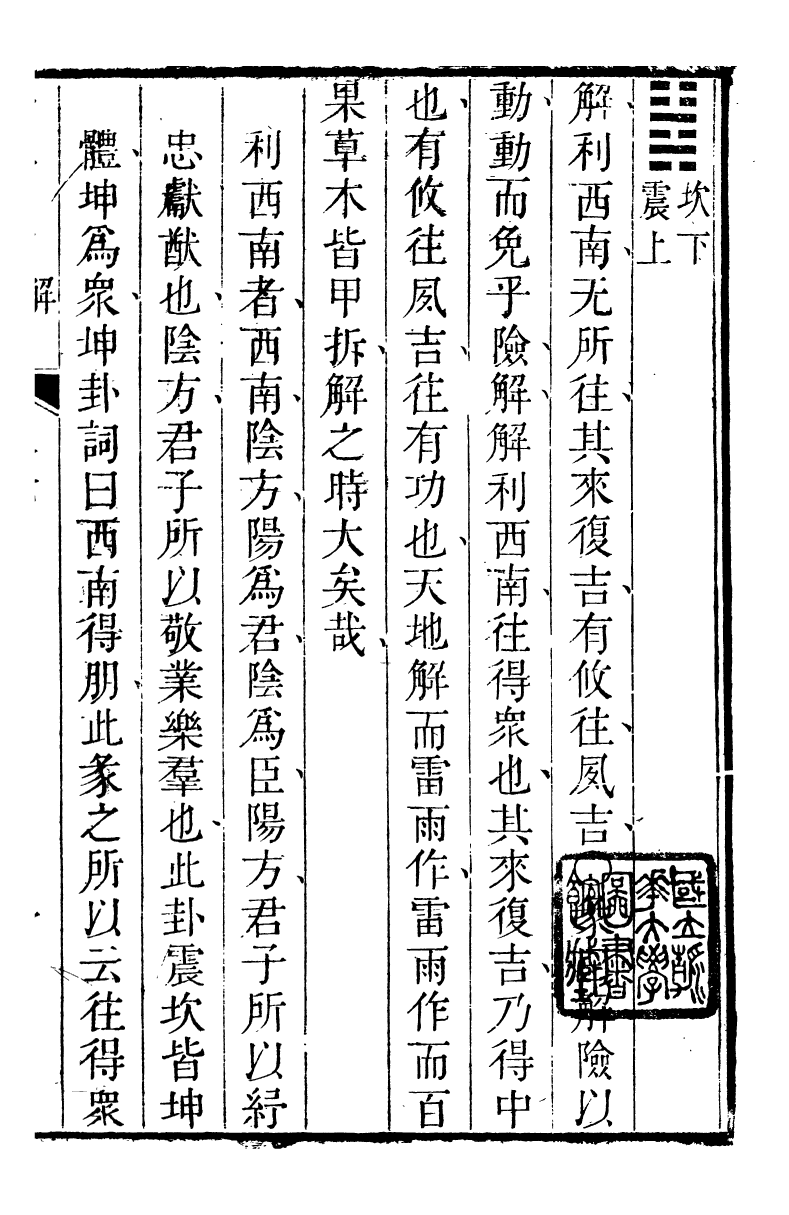 坎下
震上
解利西南无所往其來復吉有攸往夙吉解險以
動動而免乎險解解利西南往得衆也其來復吉乃得中
也有攸往夙吉往有功也天地解而雷雨作雷雨作而百
果草木皆甲拆解之時大矣哉
利西南者西南陰方陽爲君陰爲臣陽方君子所以紓
忠獻猷也陰方君子所以敬業樂羣也此卦震坎皆坤
體坤爲衆坤卦詞曰西南得朋此彖之所以云往得衆
解
國立清
華大學
圖書
館藏